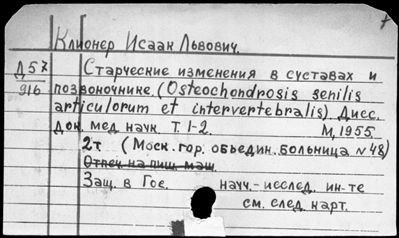 Клионер Исаак Львович.
Д57
916
Старческие изменения в суставах и
позвоночнике. (Osteochondrosis senilis
articulorum et intervertebralis). Дисс.
док. мед. наук. Т. 1-2. М, 1955.
2т (Моск. гор. объедин. больница №48)
Отпеч. на пиш. маш.
Защ. в Гос. научн.-исслед. ин-те
см. след. карт.